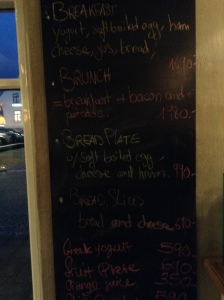 BREAKFAST
yogurt, soft boiled egg, ham
cheese, jus, bread,
1490.-
BRUNCH
= breakfast + bacon and
potatos. 1780.-
BREAD PLATE
w/ soft boiled egg
cheese and ham. 990.-
BREAD Slices
bread and cheese 610.-
Greek yogurt 590.-
Fruit Plate 690
Orange juice 350